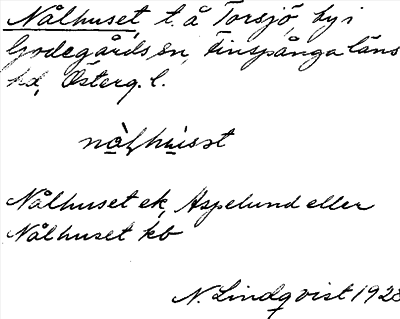 Nålhuset, t. å Torsjö, by i
Godegårds sn, Finspånga läns
hd, Österg. l.
nålhusset
Nålhuset ek, Aspelund eller
Nålhuset kb
N. Lindqvist 1928